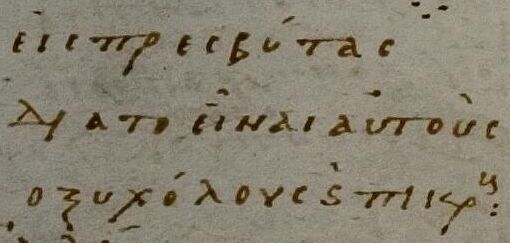 εἰς πρεσβύτας
Διὰ τὸ εἶναι αὐτοὺς
ὀξυχόλους ϗ πικρ